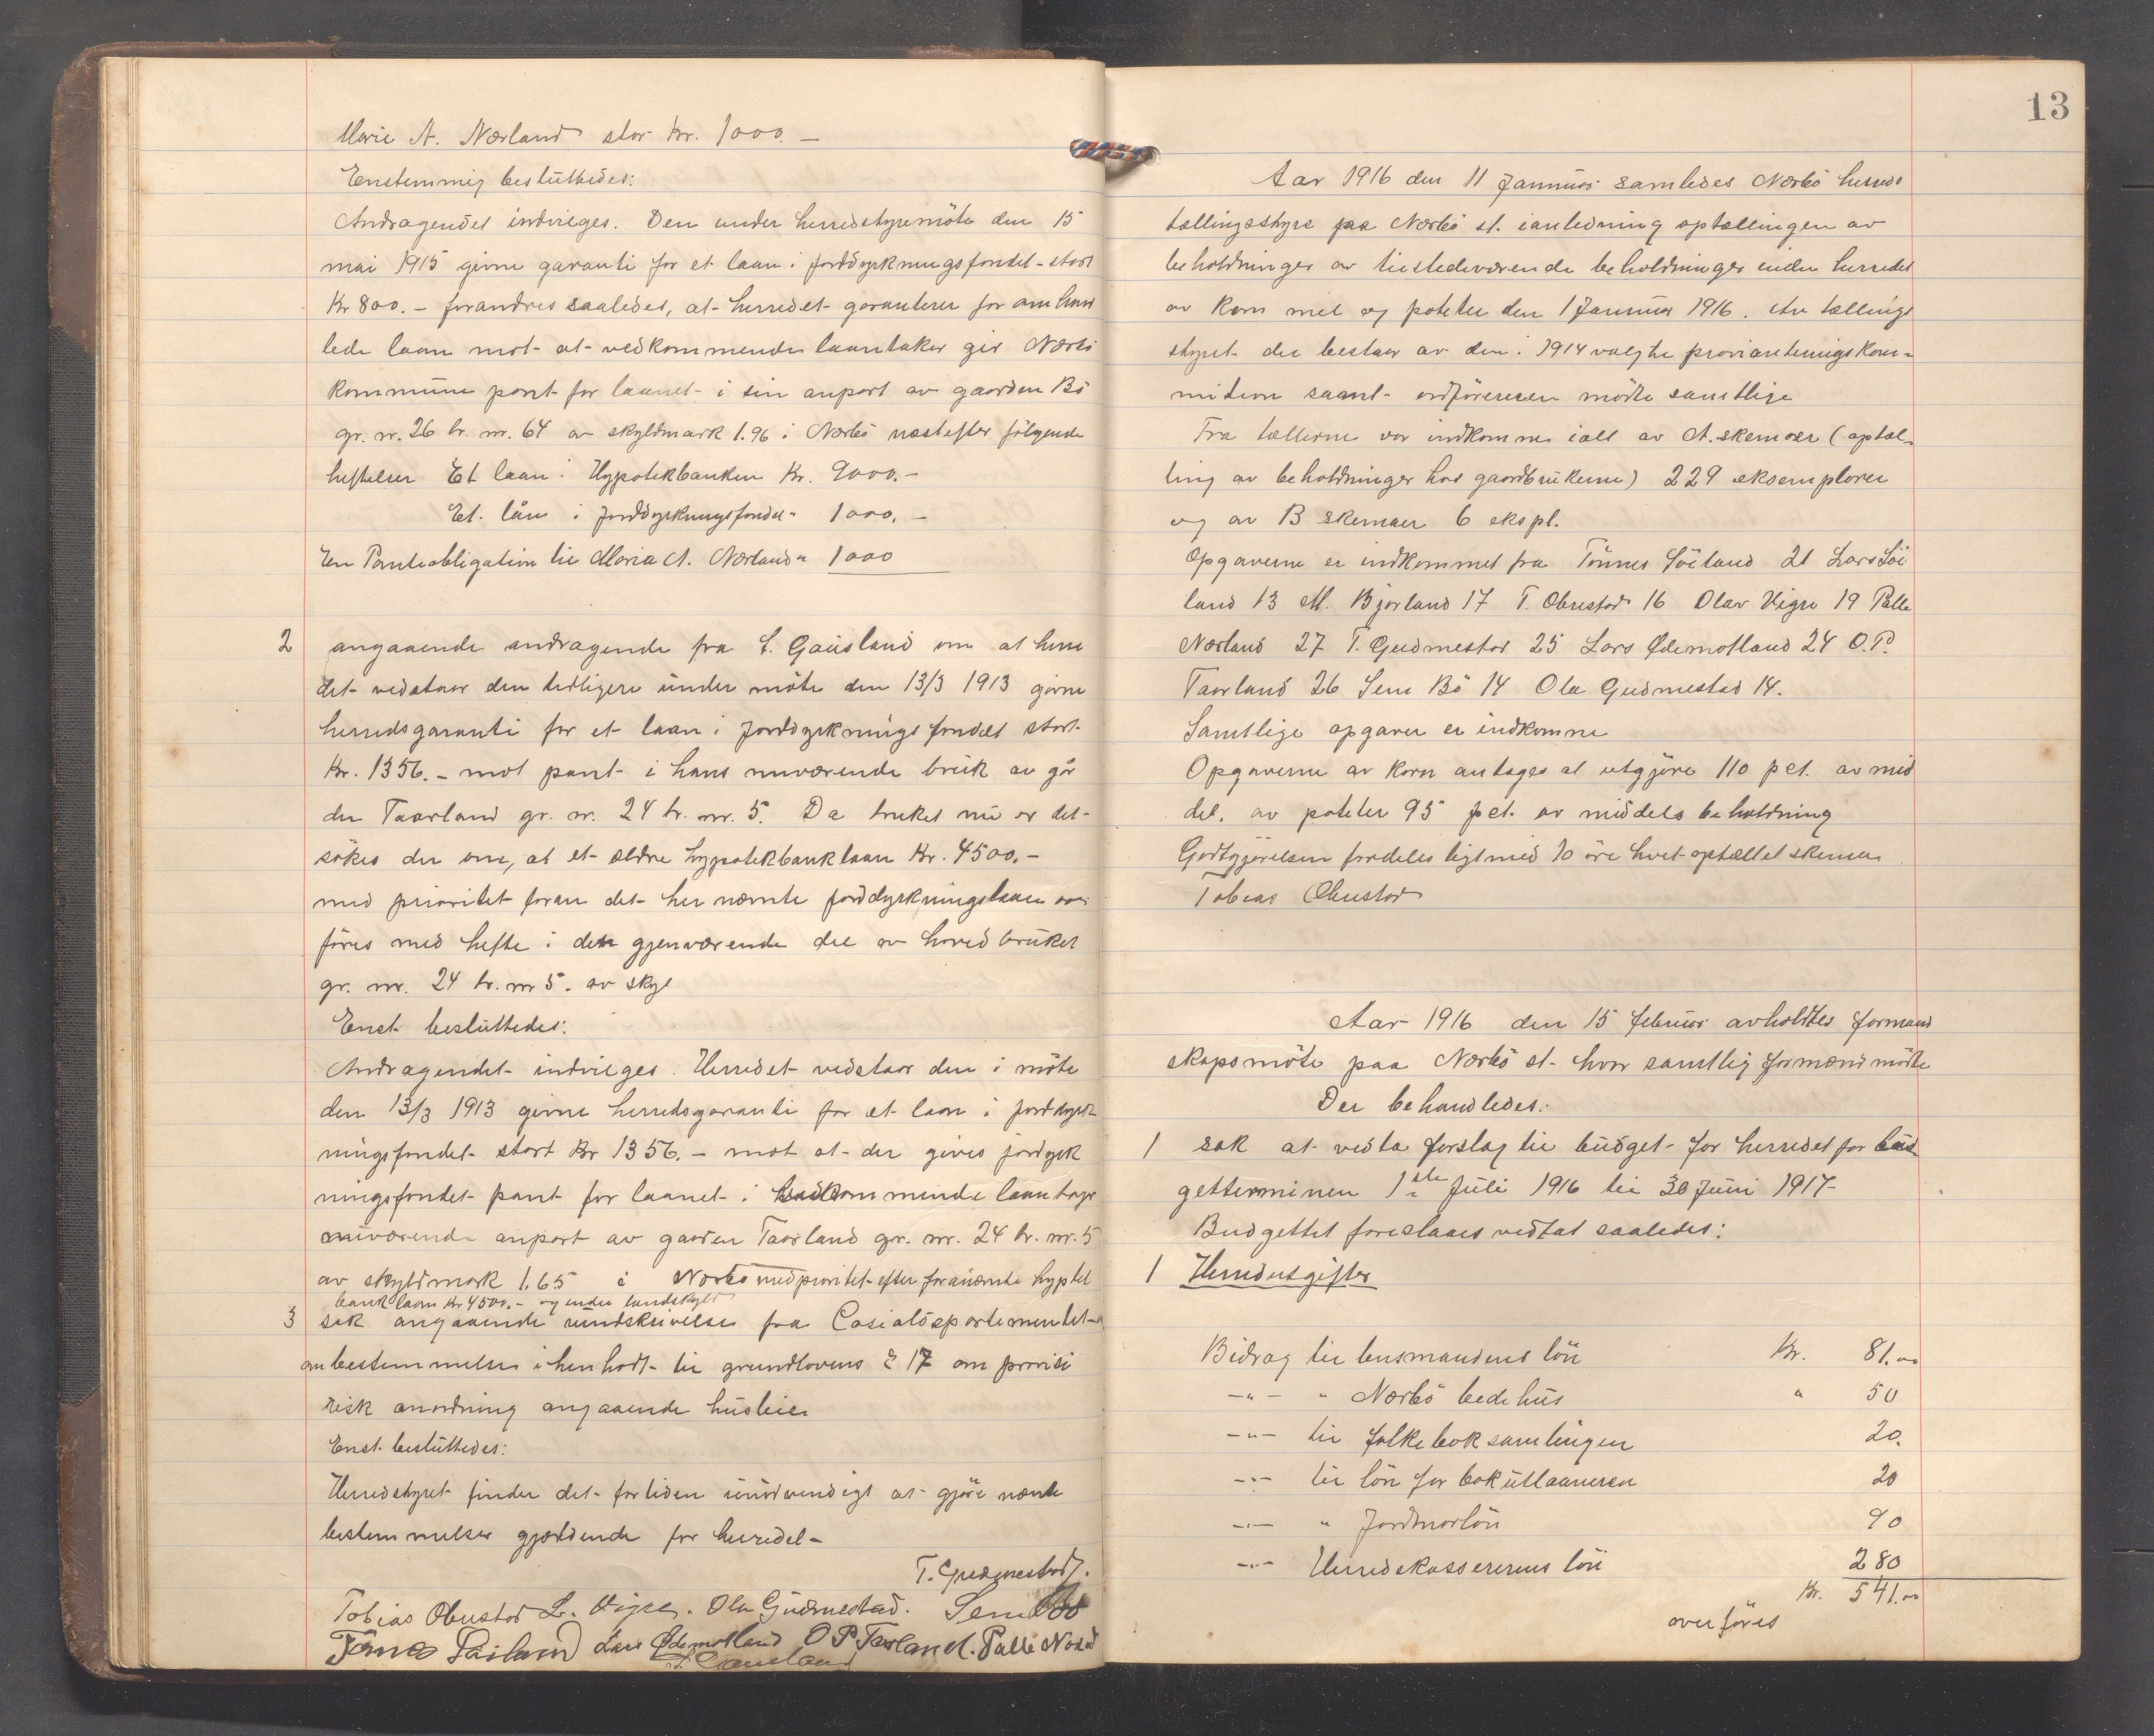 Marie A. Nærland stor Kr. 1000.-
Enstemmig besluttedes:
Andragendet indvilges. Den under herredstyremöte den 15
mai 1915 givne garanti for et laan i jorddyrkningsfondet - stort
Kr 800.- forandres saaledes, at herredet garanterer for omhand
lede laan mot at vedkommende laantaker gir Nærbö
kommune pant for laanet i sin anpart av gaarden Bö
gr. nr. 26 br. nr. 64 av skyldmark 1.96 i Nærbö næstefter fölgende
heftelser Et laan i Hypotekbanken Kr. 9000.-
Et lån i jorddyrkningsfondet " 1000.-
En Panteobligation til Maria A. Nærland " 1000
2 angaaende andragende fra E. Gausland om at herre
det vedstaar den tidligere under möte den 13/3 1913 givne
herredsgaranti for et laan i jorddyrkningsfondet stort
Kr. 1356.- mot pant i hans nuværende bruk av går
den Taarland gr. nr. 24 br. nr. 5. Da bruket nu er det-
sökes der om, at et ældre hypotekbanklaan Kr. 4500.-
med prioritet foran det her nævnte jorddyrkningslaan over
föres med hefte i den gjenværende del av hovedbruket
gr. nr. 24 br. nr 5. av skyl
Enst besluttedes:
Andragendet indvilges. Herredet vedstaar den i möte
den 13/3 1913 givne herredsgaranti for et laan i jorddyrk
ningsfondet stort Kr 1356.- mot at der gives jordyrk
ningsfondet pant for laanet i vedkommende laantager
nuværende anpart av gaarden Taarland gr. nr. 24 br. nr. 5
av skyldmark 1.65 i Nærbö med prioritet efter forannævnte hypotek
banklaan Kr 4500.- og under landskyld
3 sak angaaende rundskrivelse fra Socialdepartementet
om bestemmelse i henhold til grundlovens § 17 om provisi
risk anordning angaaende husleie
Enst. besluttedes:
Herredstyret finder det for tiden unödvendigt at gjöre nævnte
bestemmelser gjældende for herredet -
T. Gudmestad.
Tobias Obrestad L. Vigre. Ola Gudmestad. Sem Bö
Tönnes Söiland Lars Ødemotland O P Taarland. Palle Nærland
E. Gausland
13
Aar 1916 den 11 Januar samledes Nærbö herreds
tællingsstyre paa Nærbö st. i anledning optællingen av
beholdninger av tilstedeværende beholdninger inden herredet
av korn mel og poteter den 1 Januar 1916. Av tællings
styret der bestaar av den i 1914 valgte provianteringskom-
mition samt ordföreren mödte samtlige
Fra tællerne var indkommet ialt av A. skemaer (optæl-
ling av beholdninger hos gaardbrukerne) 229 eksemplarer
og av B skemaer 6 ekspl.
Opgaverne er indkommet fra Tönnes Söiland 21 Lars Söi
land 13 M. Bjorland 17 T. Obrestad 16 Olav Vigre 19 Palle
Nærland 27 T. Gudmestad 25 Lars Ødemotland 24 O.P.
Taarland 26 Sem Bö 14 Ola Gudmestad 14.
Samtlige opgaver er indkomne
Opgaverne av korn antages at utgjöre 110 pct. av mid
del. av poteter 95 pct. av middels beholdning
Godtgjörelsen fordeles ligt med 10 öre hvert optællet skema
Tobias Obrestad
Aar 1916 den 15 februar avholdtes formand
skapsmöte paa Nærbö st. hvor samtlig formænd mödte
Der behandledes:
1 sak at vedta forslag til budget for herredet for bud
getterminen 1ste Juli 1916 til 30 Juni 1917-
Budgettet foreslaaes vedtat saaledes:
1 Herredsutgifter
Bidrag til lensmandens lön Kr. 81.00
-"- " Nærbö bedehus " 50
-"- til folkeboksamlingen 20.
-"- til lön for bokutlaaneren 20
-"- " Jordmorlön 90
-"- Herredskassererens lön 280
Kr. 541.00
overföres